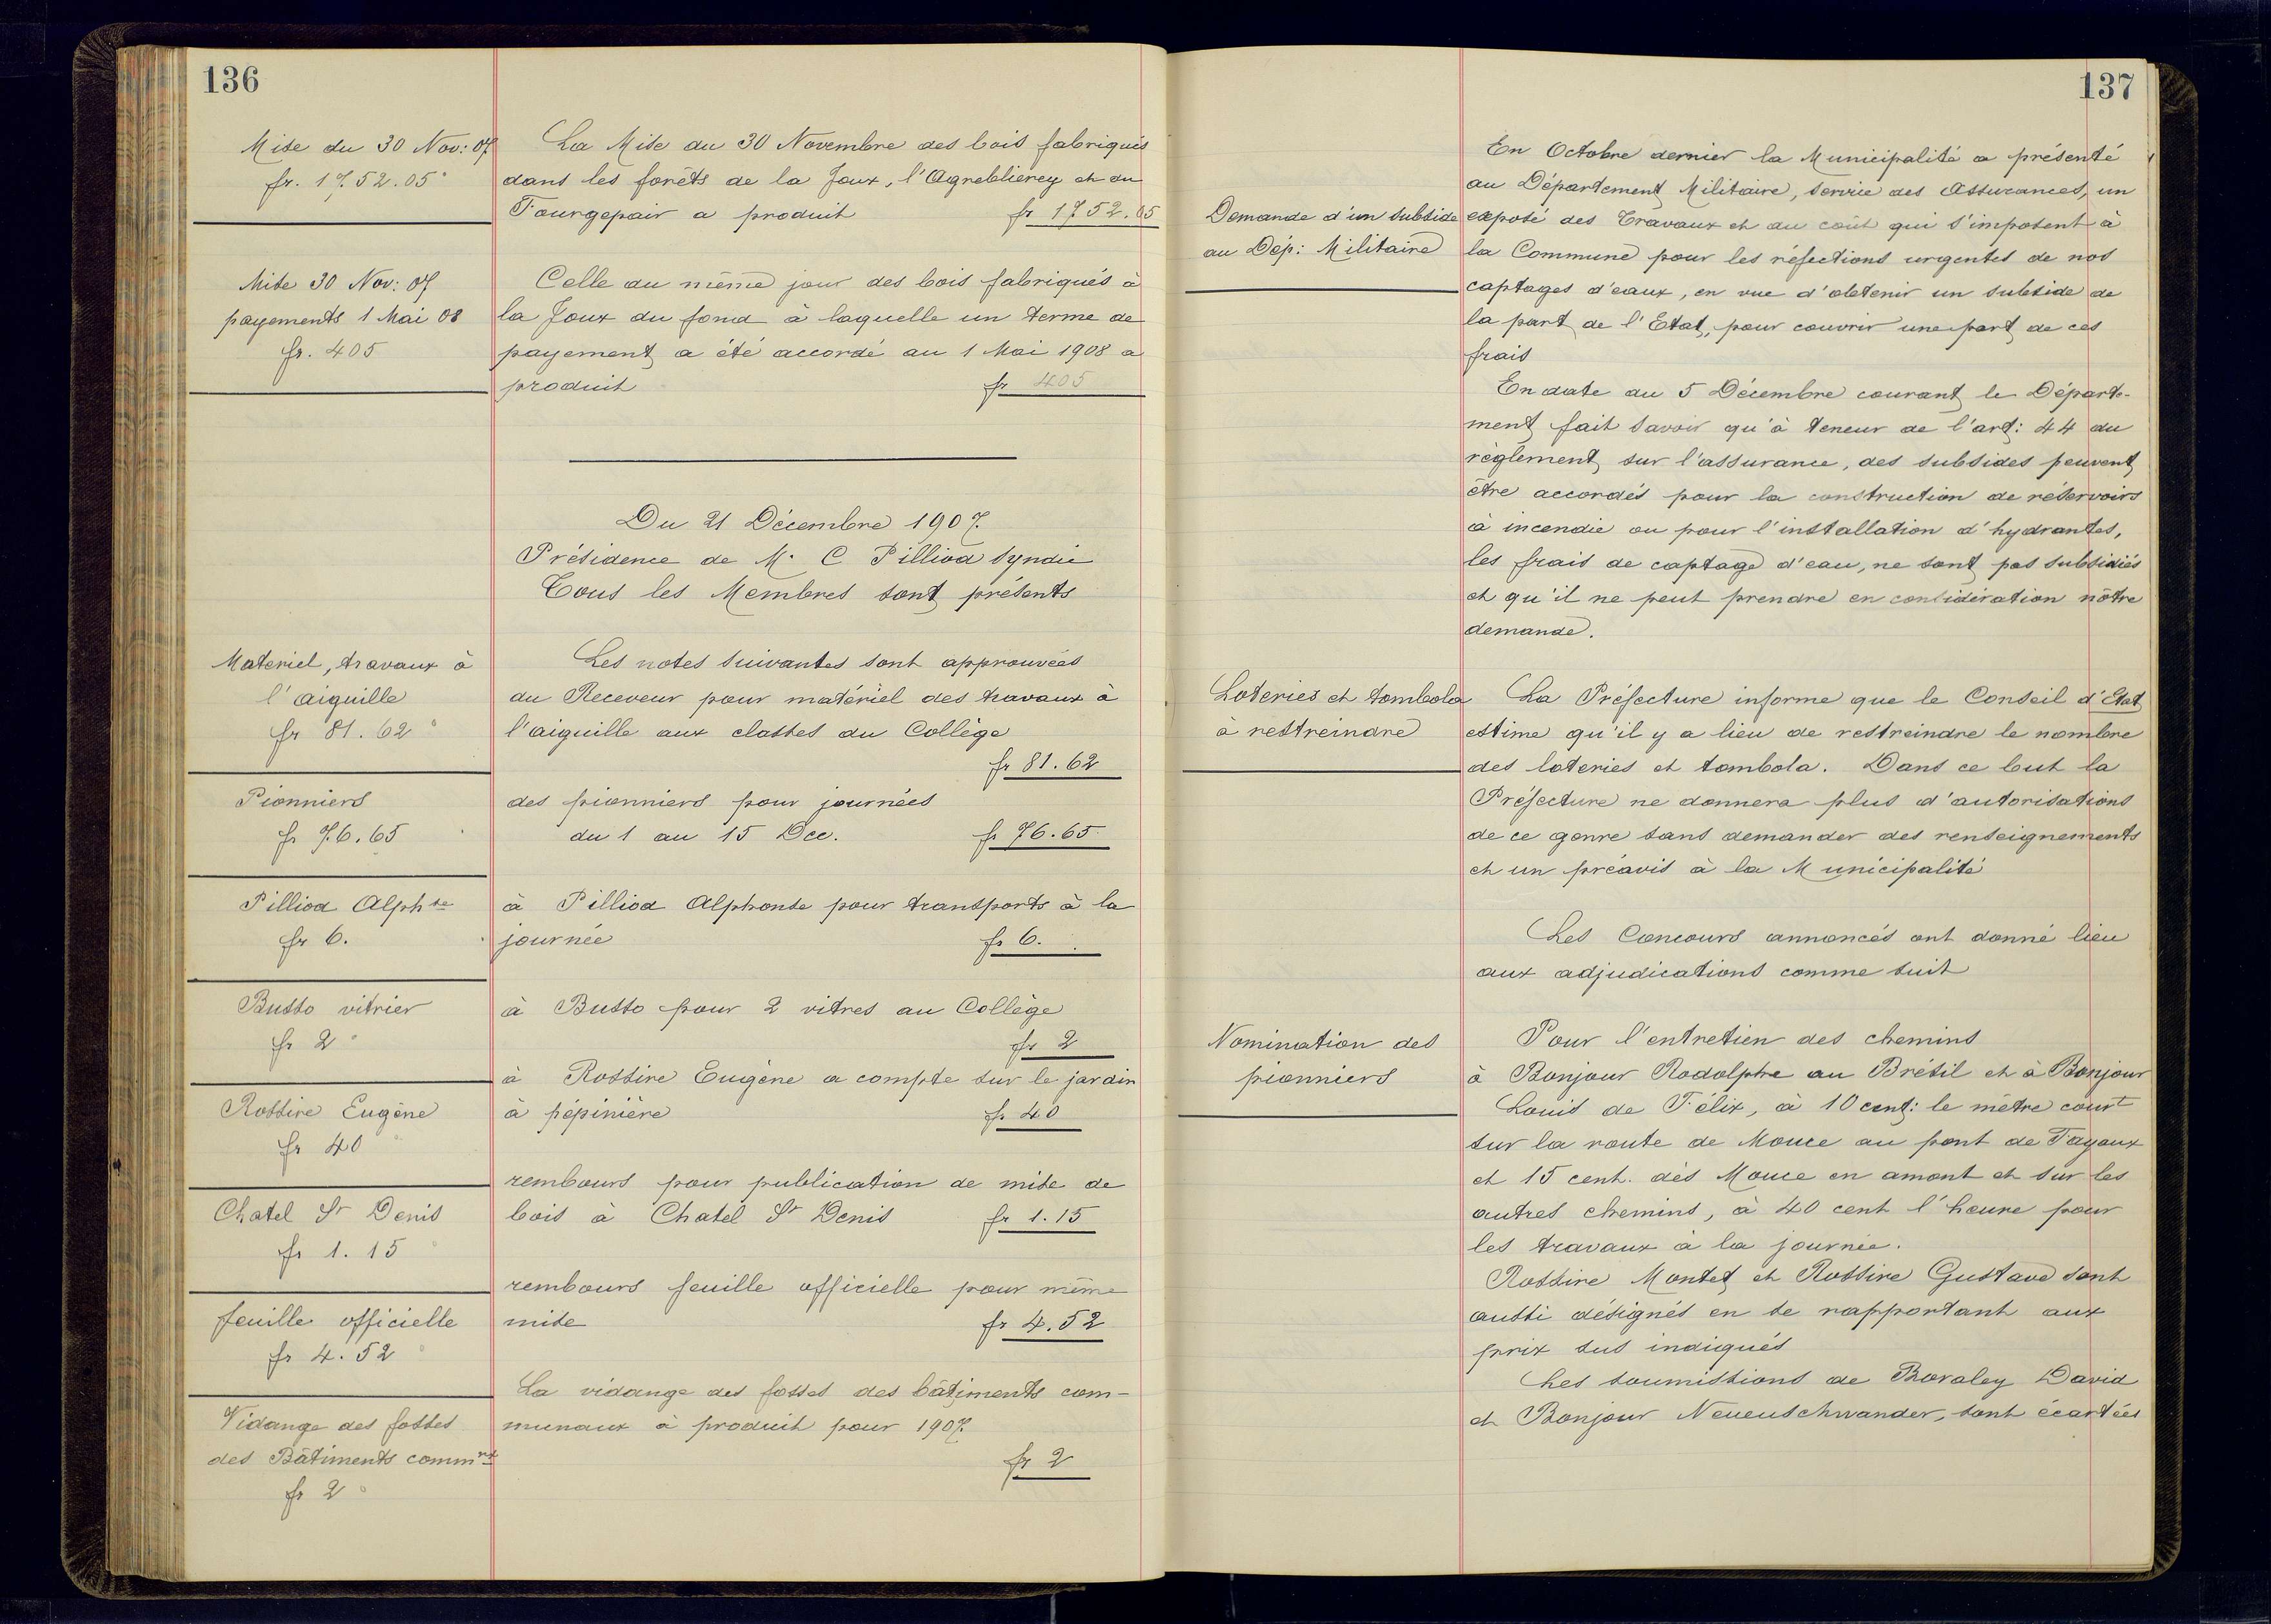 136
Mise du 30 Nov: 07
fr. 1752.05
La Mise du 30 Novembre des bois fabriqués
dans les forêts de la Joux, l'Agneblierey et du
Tourgepair a produit fr 1752.05
Mise 30 Nov: 07
payements 1 Mai 08
fr. 405
Celle du même jour des bois fabriqués à
la Joux du fond à laquelle un terme de
payement a été accordé au 1 Mai 1908 a
produit fr 405
Du 21 Décembre 1907
Présidence de M. C Pilliod Syndic
Tous les Membres sont présents
Materiel, travaux à
l'aiguille
fr 81.62
Les notes suivantes sont approuvées
du Receveur pour matériel des travaux à
l'aiguille aux classes du Collège
fr 81.62
Pionniers
fr 76.65
des pionniers pour journées
du 1 au 15 Dec. fr 76.65
Pilliod Alphse
fr 6.
à Pilliod Alphonse pour transports à la
journée fr 6.
Busso vitrier
fr 2
à Busso pour 2 vitres au Collège
fr 2
Rossire Eugène
fr 40
à Rossire Eugène a compte sur le jardin
à pépinière fr 40
Chatel St Denis
fr 1.15
rembours pour publication de mise de
bois à Chatel St Denis fr 1.15
feuille officielle
fr 4.52
rembours feuille officielle pour même
mise fr 4.52
Vidange des fosses
des Bâtiments commnx
fr 2
La vidange des fosses des bâtiments com-
munaux à produit pour 1907
fr 2
137
Demande d'un subside
au Dép: Militaire
En Octobre dernier la Municipalité a présenté
au Département Militaire, service des Assurances, un
exposé des Travaux et du coût qui s'imposent à
la Commune pour les réfections urgentes de nos
captages d'eaux, en vue d'obtenir un subside de
la part de l'Etat, pour couvrir une part de ces
frais
En date du 5 Décembre courant le Départe-
ment fait savoir qu'à teneur de l'art: 44 du
règlement sur l'assurance, des subsides peuvent
être accordés pour la construction de réservoirs
à incendie ou pour l'installation d'hydrantes,
les frais de captage d'eau, ne sont pas subsidiés
et qu'il ne peut prendre en considération nôtre
demande.
Loteries et tombola
à restreindre
La Préfecture informe que le Conseil d'Etat
estime qu'il y a lieu de restreindre le nombre
des loteries et tombola. Dans ce but la
Préfecture ne donnera plus d'autorisations
de ce genre sans demander des renseignements
et un préavis à la Municipalité
Les Concours annoncés ont donné lieu
aux adjudications comme suit
Nomination des
pionniers
Pour l'entretien des chemins
à Bonjour Rodolphe au Brésil et à Bonjour
Louis de Félix, à 10 cent: le mètre court
sur la route de Mouce au pont de Tayaux
et 15 cent. dès Mouce en amont et sur les
autres chemins, à 40 cent l'heure pour
les travaux à la journée.
Rossire Montet et Rossire Gustave sont
aussi désignés en se rapportant aux
prix sus indiqués
Les soumissions de Bovaley David
et Bonjour Neuenschwander, sont écartées